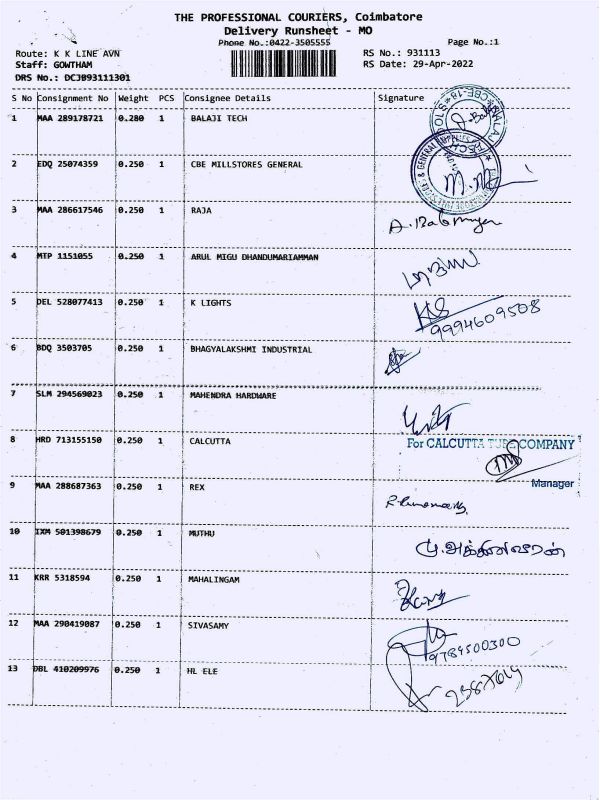 THE PROFESSIONAL COURIERS, Coimbatore
Delivery Runsheet - MO
Phone No.:0422-3505555
Page No.:1
Route: K K LINE AVN
RS No.: 931113
Staff: GOWTHAM
RS Date: 29-Apr-2022
DRS No.: DCJB93111301
S No Consignment No Weight PCS Consignee Details Signature
1 MAA 289178721 0.280 1 BALAJI TECH
2 EDQ 25074359 0.250 1 CBE MILLSTORES GENERAL
3 MAA 286617546 0.250 1 RAJA
4 MTP 1151055 0.250 1 ARUL MIGU DHANDUMARIAMMAN
5 DEL 528077413 0.250 1 K LIGHTS
9994609508
6 BDQ 3503705 0.250 1 BHAGYALAKSHMI INDUSTRIAL
7 SLM 294569023 0.250 1 MAHENDRA HARDWARE
8 HRD 713155150 0.250 1 CALCUTTA For CALCUTTA TUBE COMPANY
Manager
9 MAA 288687363 0.250 1 REX
10 IXM 501398679 0.250 1 MUTHU
11 KRR 5318594 0.250 1 MAHALINGAM
12 MAA 290419087 0.250 1 SIVASAMY
9789500300
13 DBL 410209976 0.250 1 HL ELE